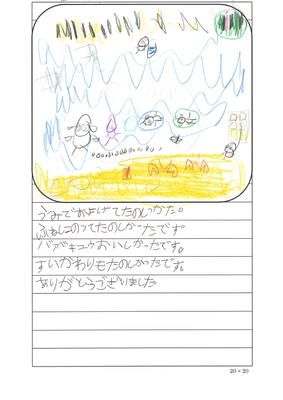 うみでおよげてたのしかた。
ふねにのってたのしかったです。
バーベキュウおいしかったです。
すいかわりもたのしかったです。
ありがとうございました。
20×20